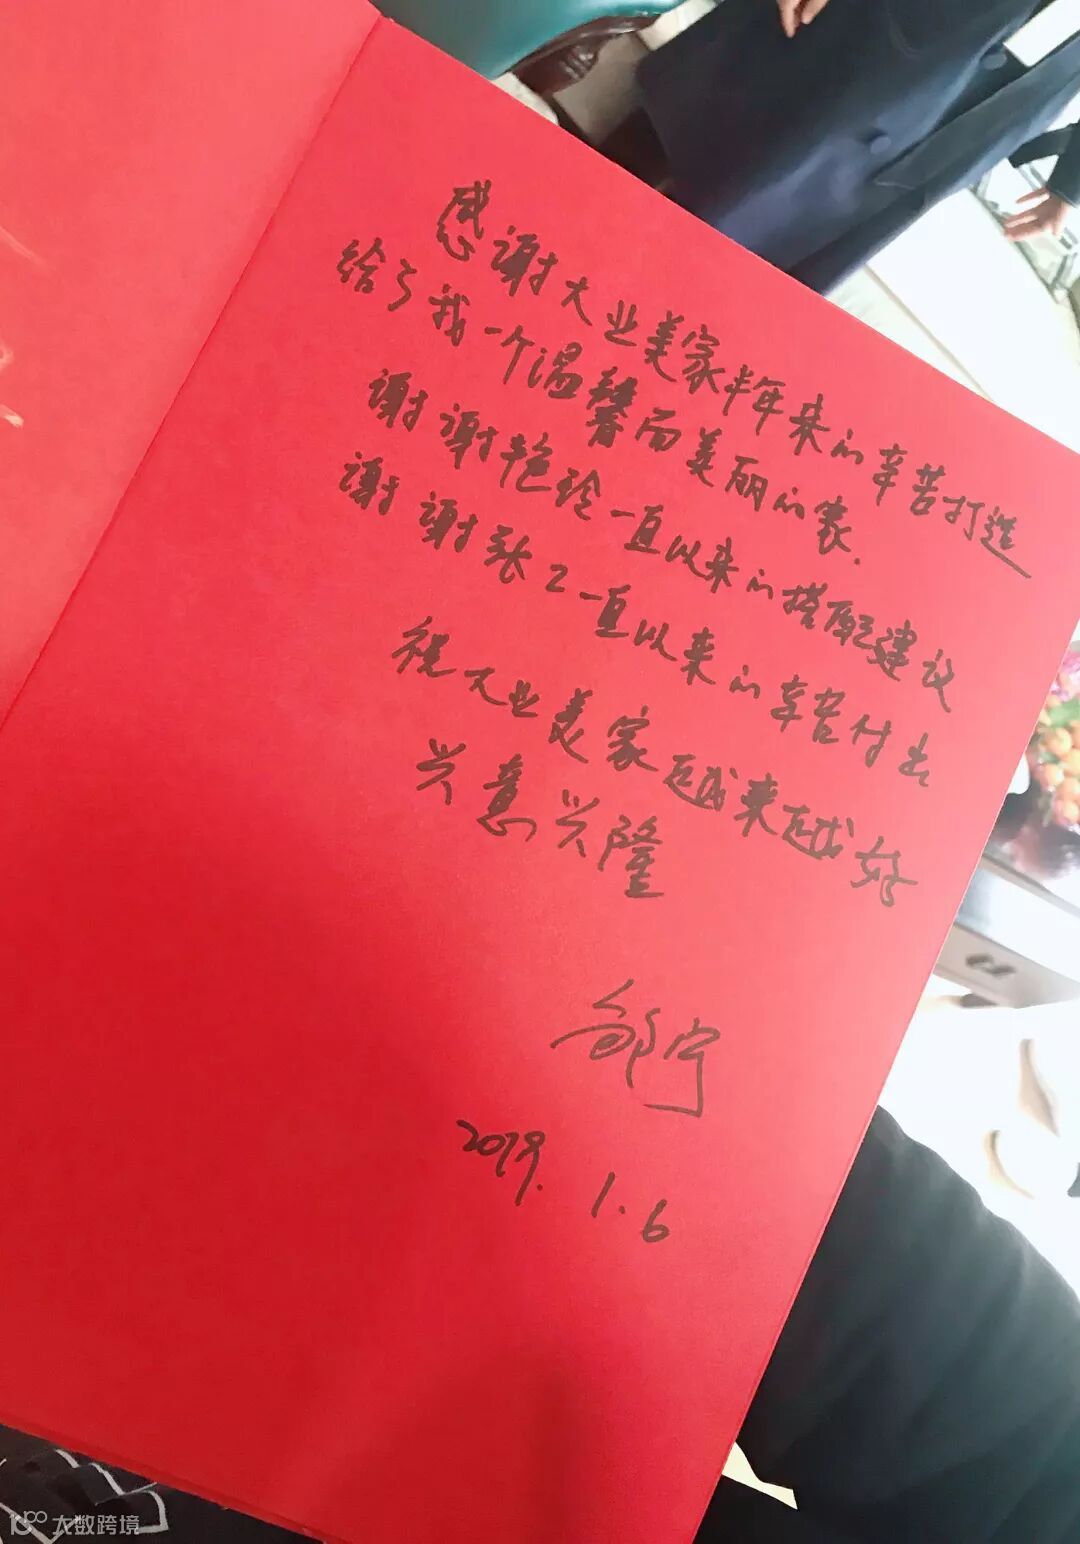 感谢大业美家半年来的辛苦打造
给了我一个温馨而美丽的家.
谢谢艳玲一直以来的搭配建议
谢谢张工一直以来的辛苦付出
祝大业美家越来越好
兴意兴隆
邹宁
2019.1.6
大数跨境